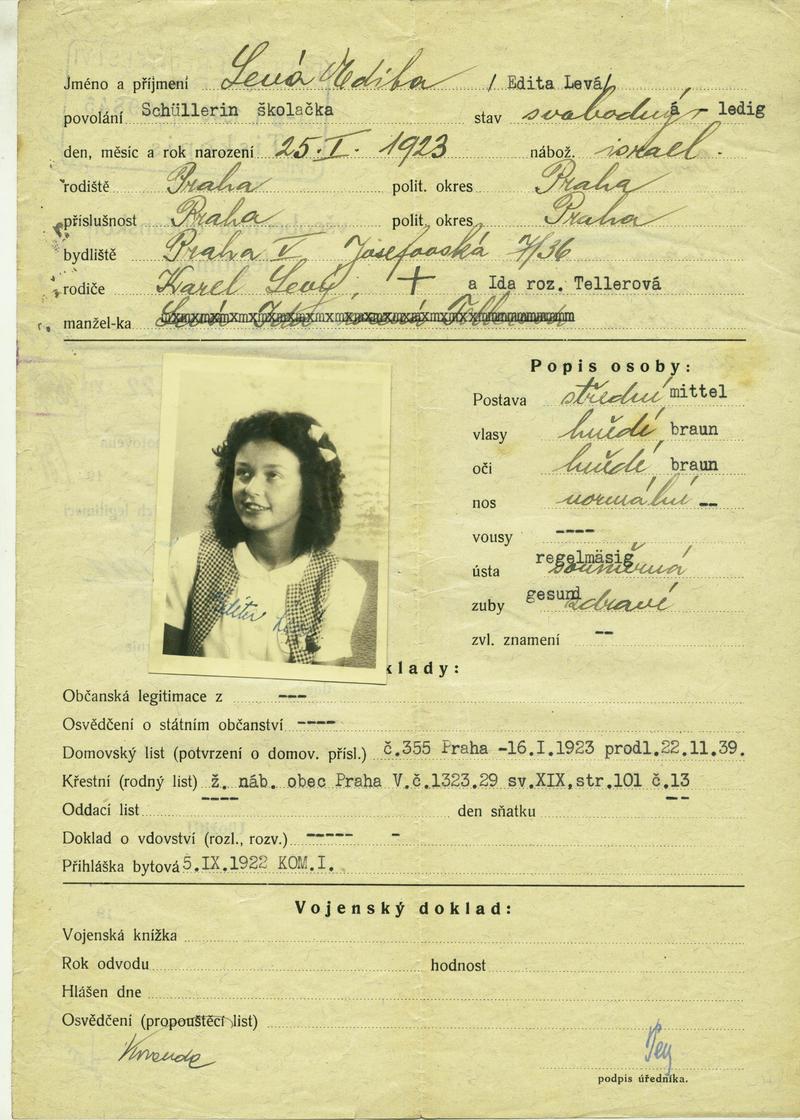 Jméno a příjmení Levá Edita / Edita Levá/
povolání Schüllerin školačka stav svobodný á - ledig
den, měsíc a rok narození 25. I. 1923 nábož. israel.
rodiště Praha polit. okres Praha
příslušnost Praha polit. okres Praha
bydliště Praha V Josefovská 7/36
rodiče Karel Levý, + a Ida roz. Tellerová
manžel-ka
Popis osoby:
Postava střední mittel
vlasy hnědé, braun
oči hnědé, braun
nos normální --
vousy ----
ústa regelmäsig souměrná
zuby gesund zdravé
zvl. znamení --
klady:
Občanská legitimace z ---
Osvědčení o státním občanství ----
Domovský list (potvrzení o domov. přísl.) č.355 Praha -16.I.1923 prodl.22.11.39.
Křestní (rodný list) ž. náb. obec Praha V.č.1323.29 sv.XIX,str.101 č.13
Oddací list ---- den sňatku --
Doklad o vdovství (rozl., rozv.) ----- -
Přihláška bytová 5.IX.1922 KOM.I.
Vojenský doklad:
Vojenská knížka
Rok odvodu hodnost
Hlášen dne
Osvědčení (propouštěcí list)
podpis úředníka.